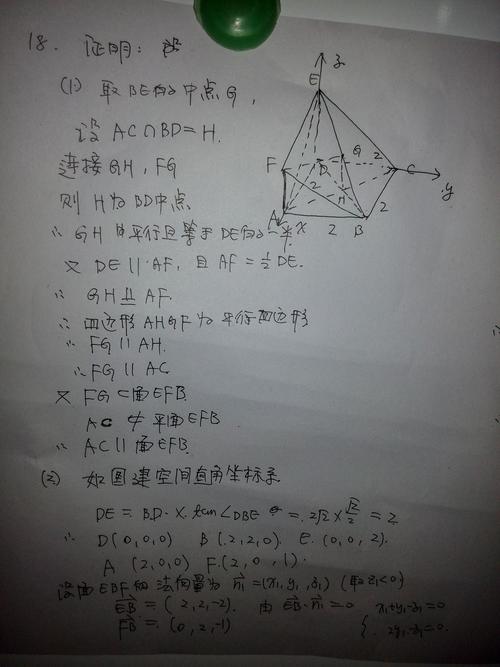 18. 证明: 设
(1) 取BE的中点G,
设 AC∩BD=H.
连接GH, FG
则 H为BD中点
∴ GH 平行且等于DE的一半
又 DE∥AF, 且 AF=½DE.
∴ GH ∥= AF.
∴ 四边形AHGF为平行四边形
∴ FG∥AH.
∴ FG∥AC
又 FG⊂面EFB
AC ⊄ 平面EFB
∴ AC∥面EFB.
(2) 如图建空间直角坐标系
DE = BD·X tan∠DBE = 2√2×√2/2 = 2
∴ D(0,0,0) B(2,2,0). E(0,0,2).
A (2,0,0) F(2,0,1).
设面EBF的法向量为 n₁=(x₁,y₁,z₁) (取z₁<0)
EB = (2,2,-2). 由 EB·n₁=0 x₁+y₁-z₁=0
FB = (0,2,-1) { 2y₁-z₁=0.
z
E
F
D
G
2
C
y
2
H
A
x
2
B
2